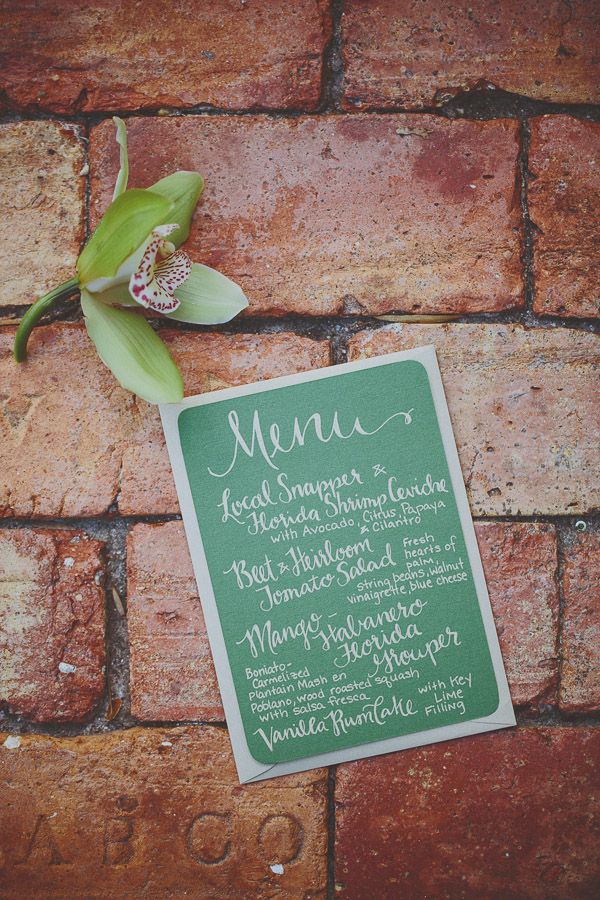 Menu
Local Snapper &
Florida Shrimp Ceviche
with Avocado, Citrus, Papaya
& Cilantro
Beet & Heirloom
Tomato Salad
Fresh
hearts of
palm,
string beans, walnut
vinaigrette, blue cheese
Mango-
Habanero
Florida
Grouper
Boniato-
Carmelized
plantain Mash en
Poblano, wood roasted squash
with salsa fresca
Vanilla Rum Cake
with Key
Lime
Filling
AB CO